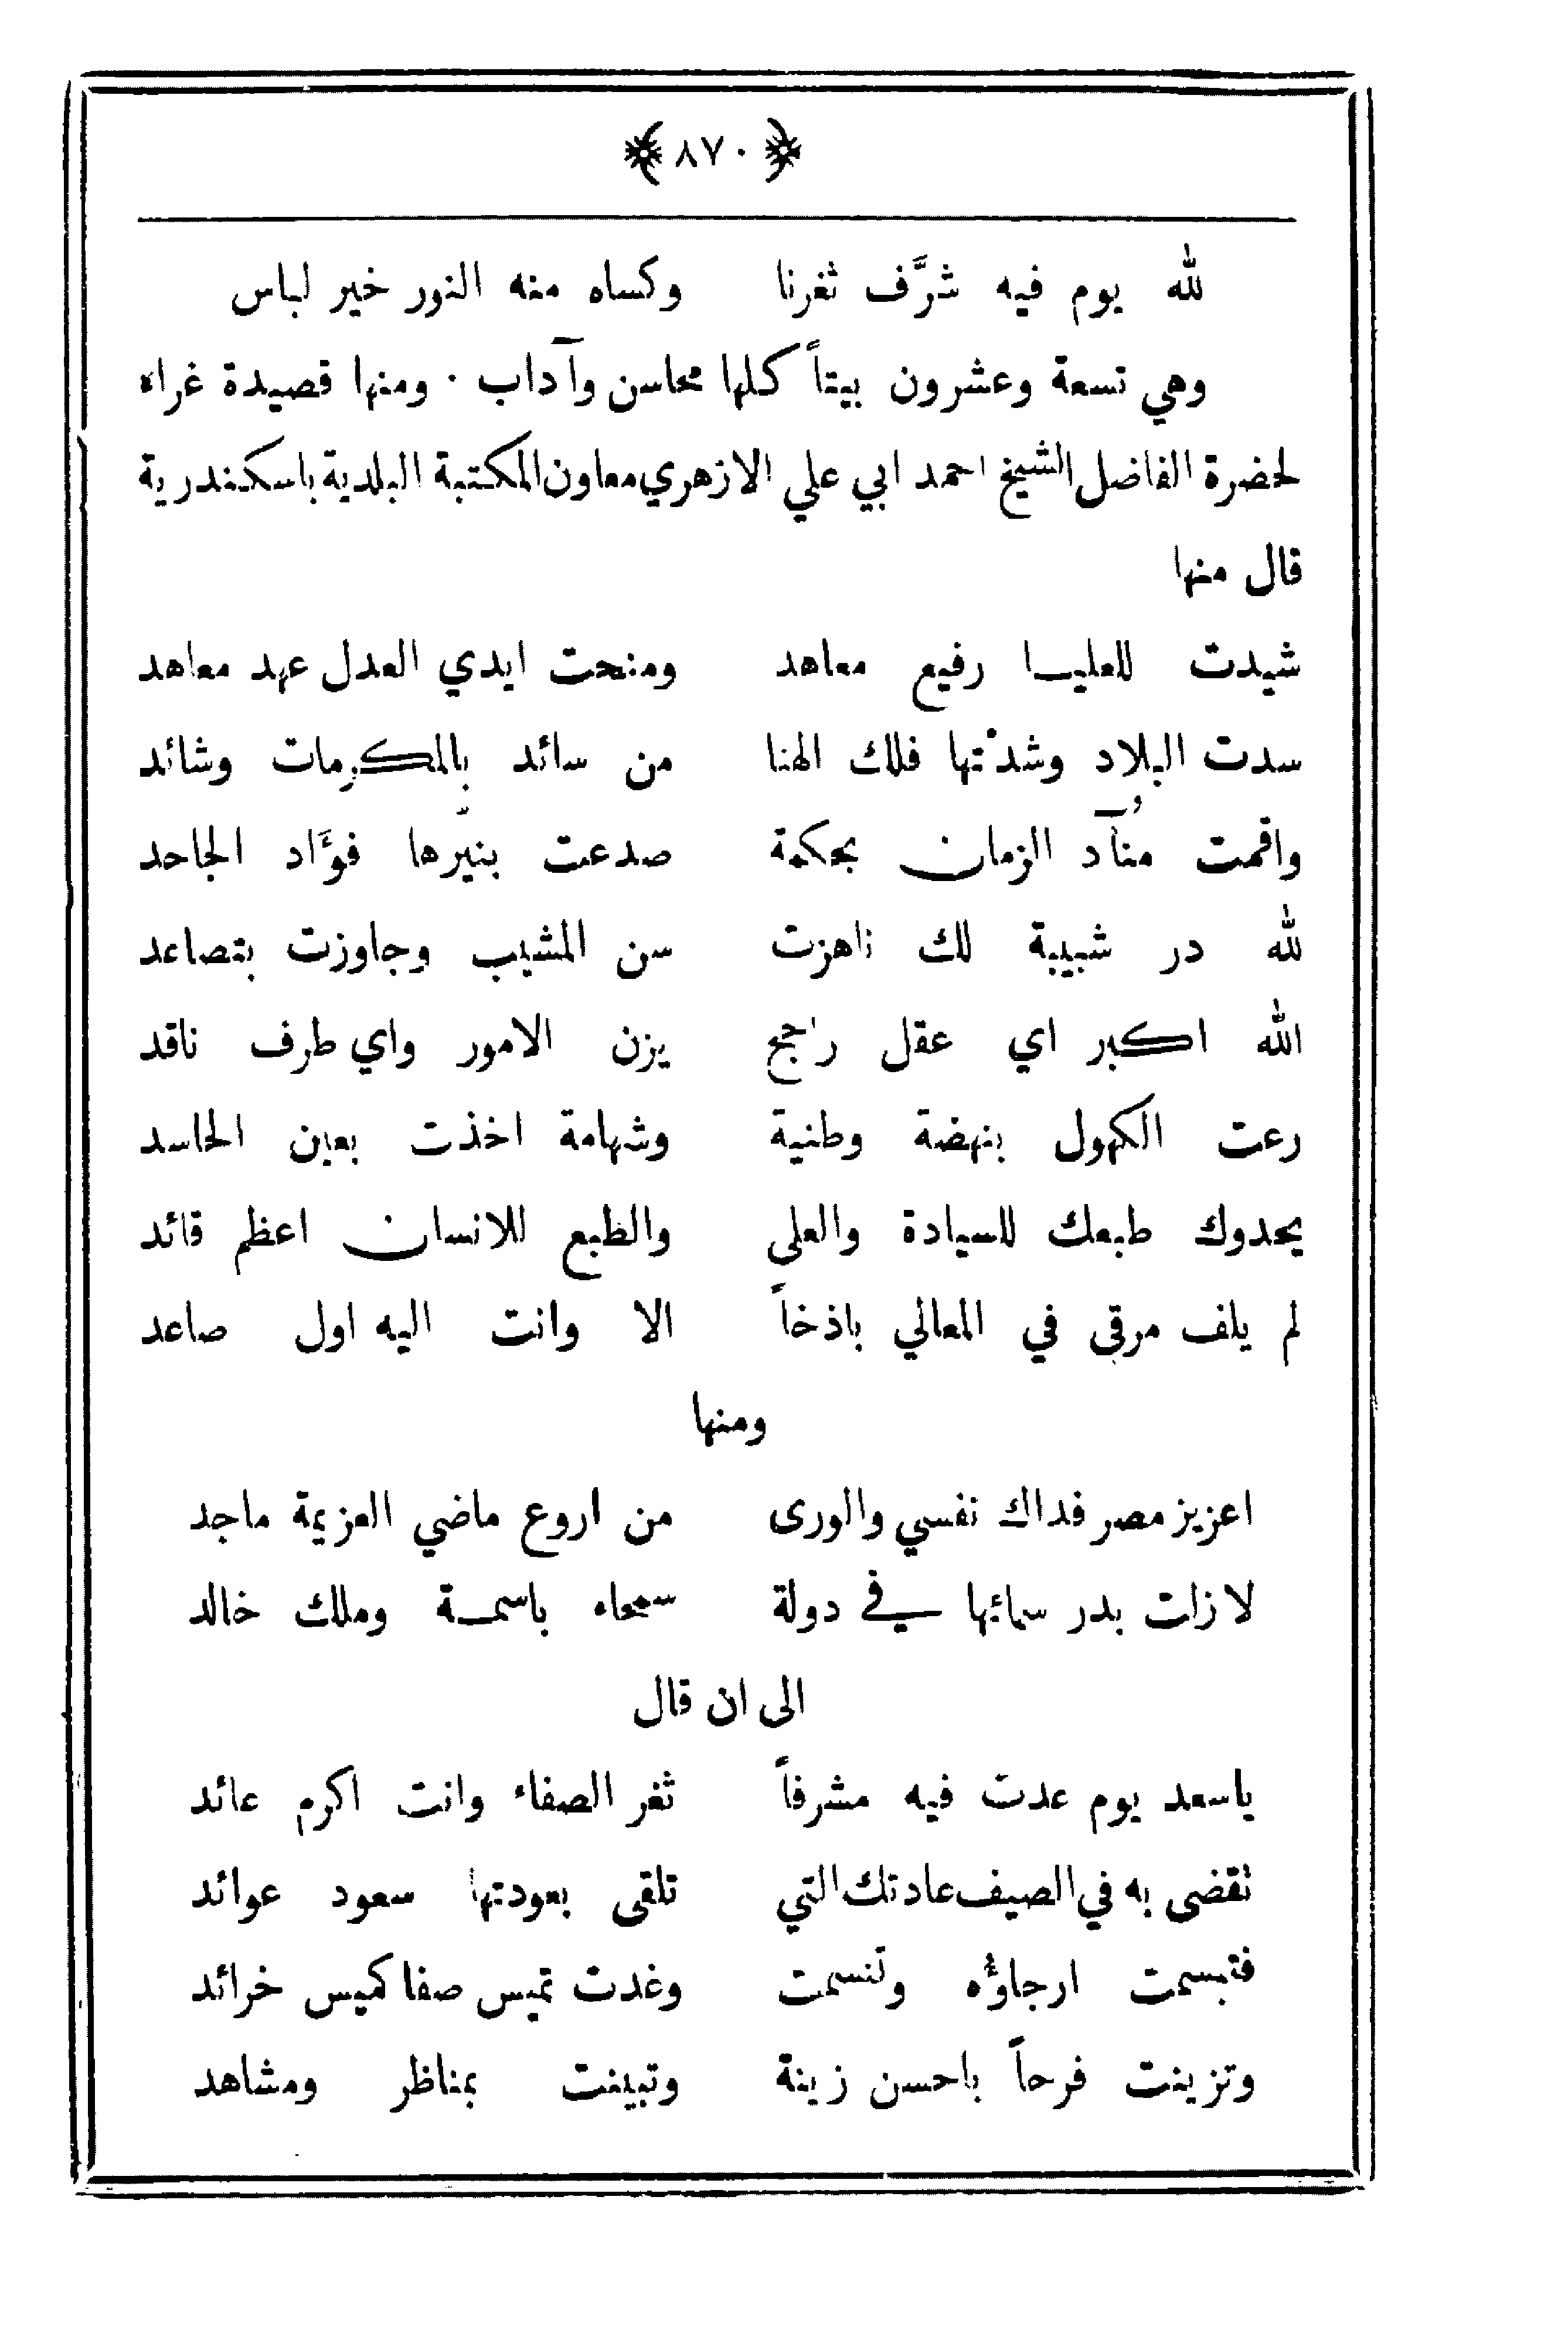 ﴿ ٨٧٠ ﴾
لله يوم فيه شرَّف ثغرنا وكساه منه النور خير لباس
وهي تسعة وعشرون بيتاً كلها محاسن وآداب · ومنها قصيدة غراء
لحضرة الفاضل الشيخ احمد ابي علي الازهري معاون المكتبة البلدية باسكندرية
قال منها
شيدت للعليا رفيع معاهد ومنحت ايدي العدل عهد معاهد
سدت البلاد وشدْتها فلك الهنا من سائد بالمكرِمات وشائد
واقمت مُنآد الزمان بحكمة صدعت بنيّرها فوَّاد الجاحد
لله در شبيبة لك ناهزت سن المشيب وجاوزت بتصاعد
الله اكبر اي عقل راجح يزن الامور واي طرف ناقد
رعت الكهول بنهضة وطنية وشهامة اخذت بعين الحاسد
يحدوك طبعك للسيادة والعلى والطبع للانسان اعظم قائد
لم يلف مرقى في المعالي باذخاً الا وانت اليه اول صاعد
ومنها
اعزيز مصر فداك نفسي والورى من اروع ماضي العزيمة ماجد
لا زلت بدر سمائها في دولة سمحاء باسمة وملك خالد
الى ان قال
ياسعد يوم عدت فيه مشرفاً ثغر الصفاء وانت اكرم عائد
نقضى به في الصيف عادتك التي تلقى بعودتها سعود عوائد
فتبسمت ارجاؤه وتنسمت وغدت تميس صفا كميس خرائد
وتزينت فرحاً باحسن زينة وتبينت بمناظر ومشاهد